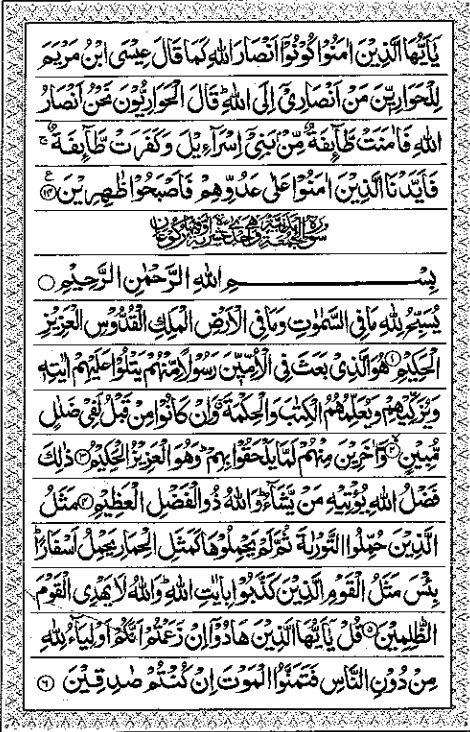 يٰۤاَيُّهَا الَّذِيْنَ اٰمَنُوْا كُوْنُوْۤا اَنْصَارَ اللّٰهِ كَمَا قَالَ عِيْسَى ابْنُ مَرْيَمَ
لِلْحَوَارِيّٖنَ مَنْ اَنْصَارِيْۤ اِلَى اللّٰهِ ؕ قَالَ الْحَوَارِيُّوْنَ نَحْنُ اَنْصَارُ
اللّٰهِ فَاٰمَنَتْ طَّآئِفَةٌ مِّنْۢ بَنِيْۤ اِسْرَآءِيْلَ وَكَفَرَتْ طَّآئِفَةٌ ۚ
فَاَيَّدْنَا الَّذِيْنَ اٰمَنُوْا عَلٰى عَدُوِّهِمْ فَاَصْبَحُوْا ظٰهِرِيْنَ ﴿۱۴﴾ ع
بِسْمِ اللّٰهِ الرَّحْمٰنِ الرَّحِيْمِ ○
يُسَبِّحُ لِلّٰهِ مَا فِي السَّمٰوٰتِ وَمَا فِي الْاَرْضِ الْمَلِكِ الْقُدُّوْسِ الْعَزِيْزِ
الْحَكِيْمِ ﴿۱﴾ هُوَ الَّذِيْ بَعَثَ فِي الْاُمِّيّٖنَ رَسُوْلًا مِّنْهُمْ يَتْلُوْا عَلَيْهِمْ اٰيٰتِهٖ
وَيُزَكِّيْهِمْ وَيُعَلِّمُهُمُ الْكِتٰبَ وَالْحِكْمَةَ ۗ وَاِنْ كَانُوْا مِنْ قَبْلُ لَفِيْ ضَلٰلٍ
مُّبِيْنٍ ﴿۲﴾ وَّاٰخَرِيْنَ مِنْهُمْ لَمَّا يَلْحَقُوْا بِهِمْ ؕ وَهُوَ الْعَزِيْزُ الْحَكِيْمُ ﴿۳﴾ ذٰلِكَ
فَضْلُ اللّٰهِ يُؤْتِيْهِ مَنْ يَّشَآءُ ؕ وَاللّٰهُ ذُو الْفَضْلِ الْعَظِيْمِ ﴿۴﴾ مَثَلُ
الَّذِيْنَ حُمِّلُوا التَّوْرٰىةَ ثُمَّ لَمْ يَحْمِلُوْهَا كَمَثَلِ الْحِمَارِ يَحْمِلُ اَسْفَارًا ؕ
بِئْسَ مَثَلُ الْقَوْمِ الَّذِيْنَ كَذَّبُوْا بِاٰيٰتِ اللّٰهِ ؕ وَاللّٰهُ لَا يَهْدِي الْقَوْمَ
الظّٰلِمِيْنَ ﴿۵﴾ قُلْ يٰۤاَيُّهَا الَّذِيْنَ هَادُوْۤا اِنْ زَعَمْتُمْ اَنَّكُمْ اَوْلِيَآءُ لِلّٰهِ
مِنْ دُوْنِ النَّاسِ فَتَمَنَّوُا الْمَوْتَ اِنْ كُنْتُمْ صٰدِقِيْنَ ﴿۶﴾